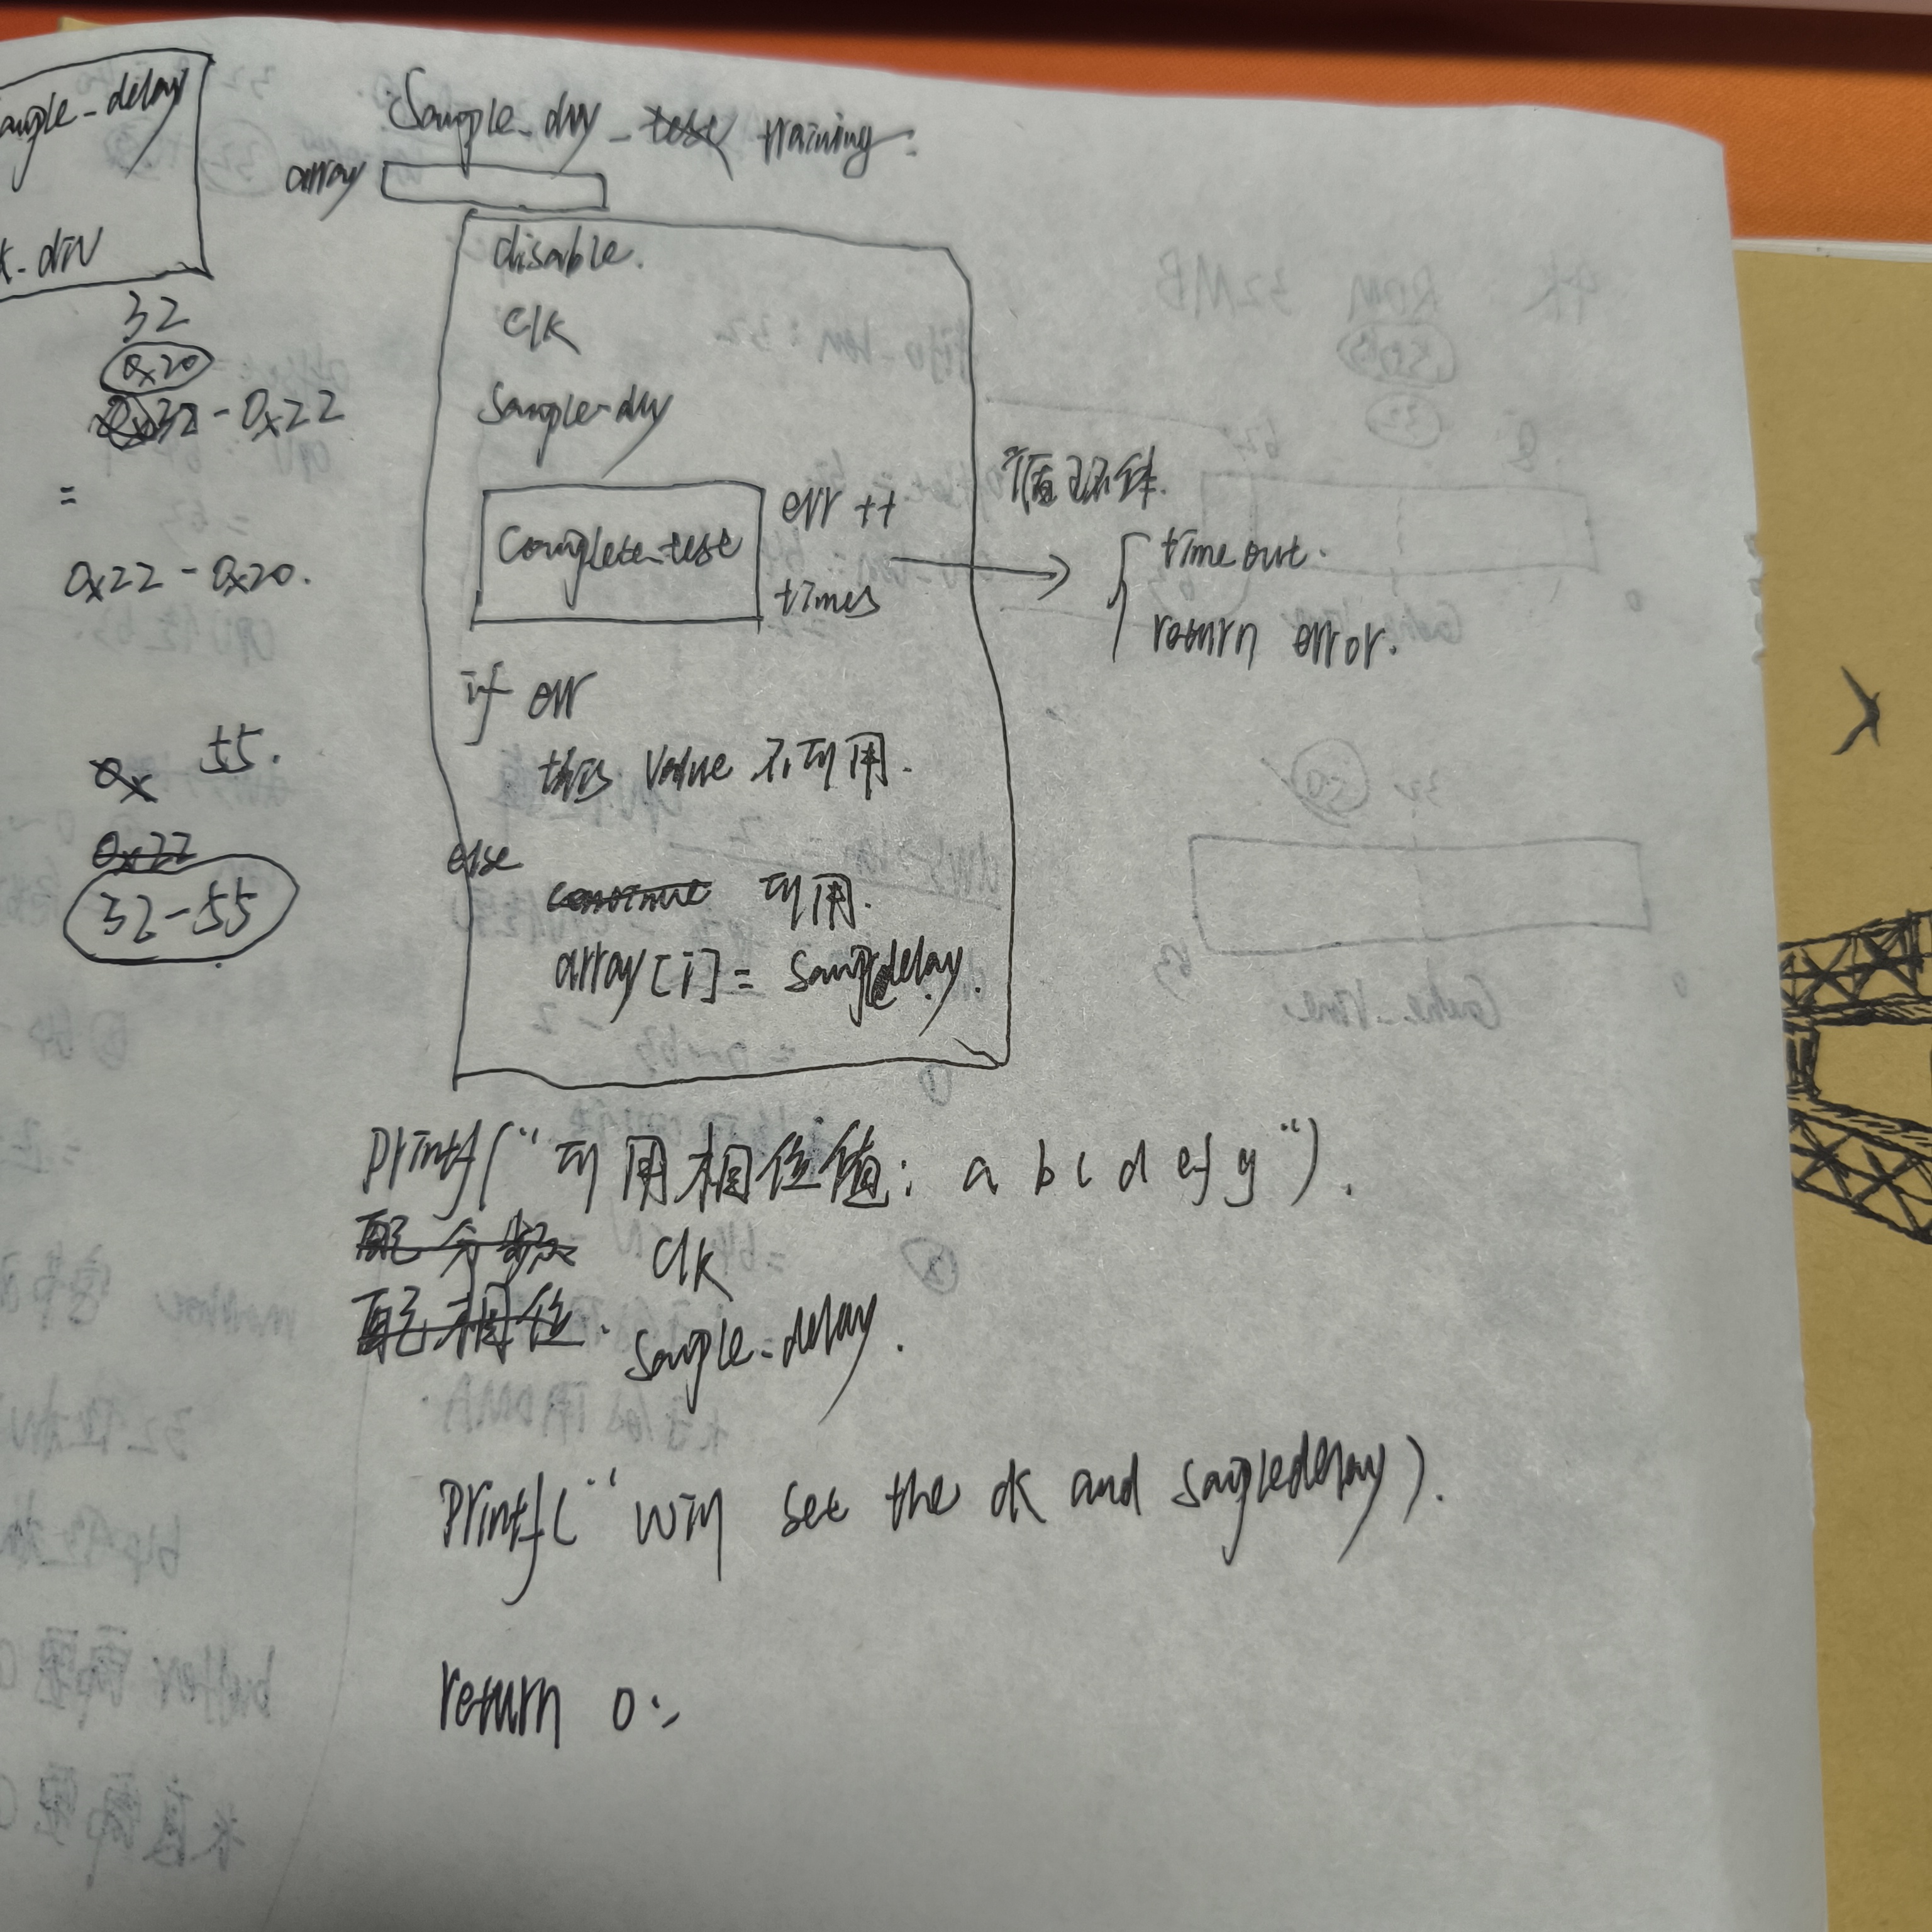 ample_delay
k_div
32
0x20
0x32 - 0x22
=
0x22 - 0x20.
0x 55.
0x22
32-55
Sample_dly_test training:
array
disable.
clk
Sample_dly
Complete_test
err ++
times
time out.
return error.
if err
this value 不可用.
else
continue 可用.
array[i] = Sampledelay.
Printf("可用相位值: a b c d e f g").
配分频 clk
配相位. sample_delay.
Printf("will set the clk and sampledelay).
return 0;